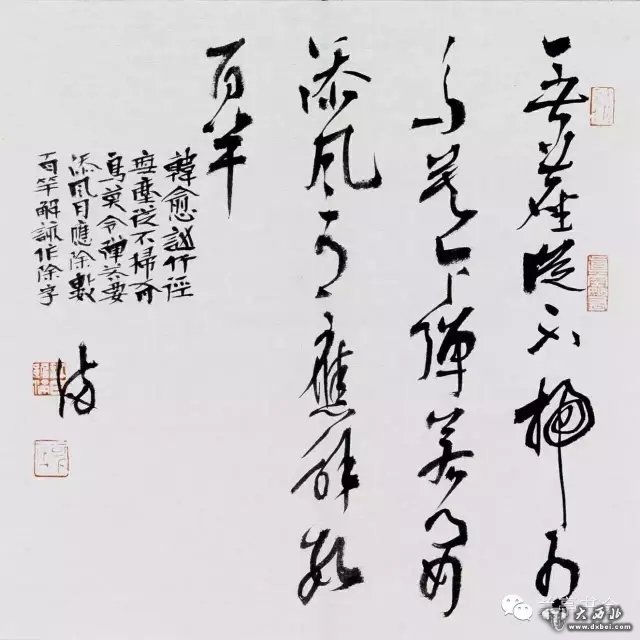 無塵從不掃有
鳥莫令彈若要
添風月應解數
百竿
韓愈詠竹徑
無塵從不掃有
鳥莫令彈若要
添風月應除數
百竿解誤作除字
大西北
www.dxbei.com